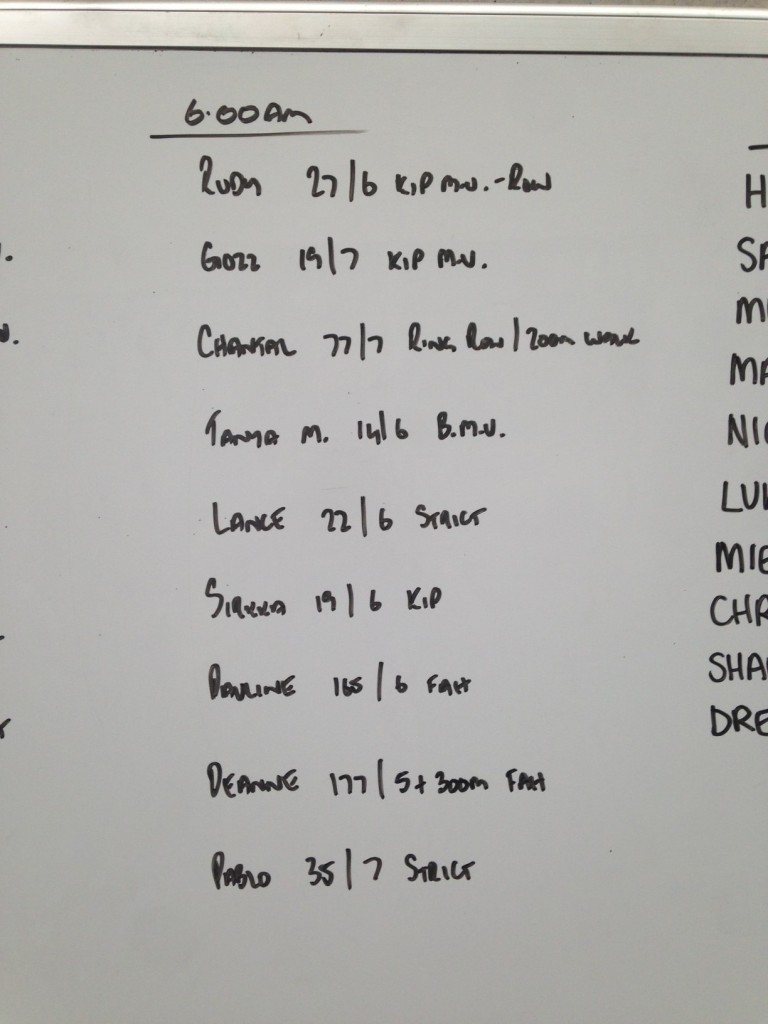 6.00AM
RUDY 27/6 KIP M.U.-ROW
GOZZ 19/7 KIP M.U.
CHANTAL 77/7 RING ROW/200M WALK
TANYA M. 14/6 B.M.U.
LANCE 22/6 STRICT
19/6 KIP
PAULINE 165/6 FAH
DEANNE 177/5+300M FAH
PABLO 35/7 STRICT
H
SA
M
MA
NIC
LU
MIE
CHR
SHA
DRE